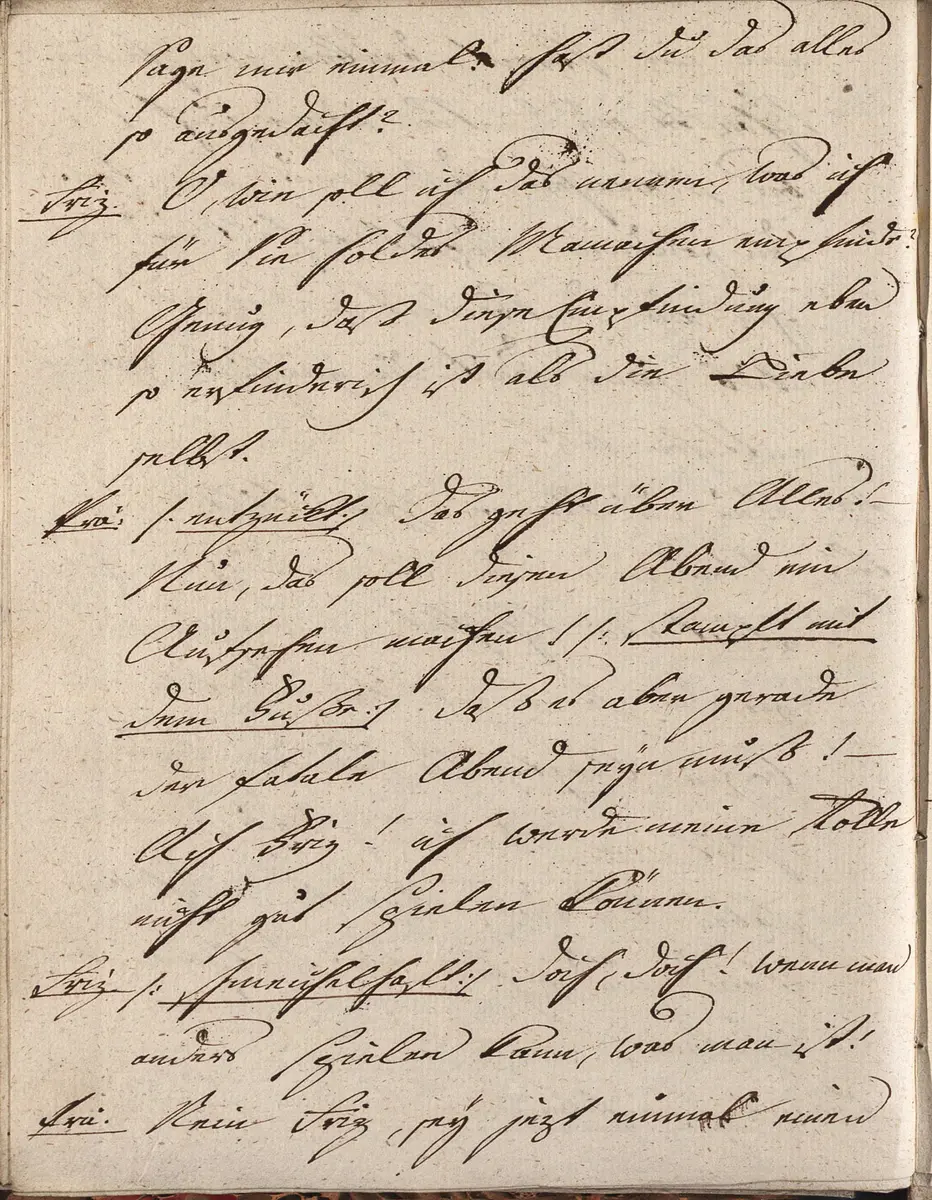 Sage mir einmal: hast du das alles
so ausgedacht?
Friz. O, wie soll ich das nennen, was ich
für Sie holdes Mamachen empfinde?
Genug, daß diese Empfindung eben
so erfinderisch ist als die Liebe
selbst.
Prä: /: entzückt :/ Das geht über Alles! –
Nun, das soll diesen Abend ein
Aufsehen machen! /: stampft mit
dem Fuße :/ Daß es aber gerade
der fatale Abend seÿn muß! –
Ach Friz! ich werde meine Rolle
nicht gut spielen können.
Friz /: schmeichelhaft :/ Doch, doch! wenn man
anders spielen kann, was man ist!
Prä. Nein Friz, seÿ jezt einmal einen